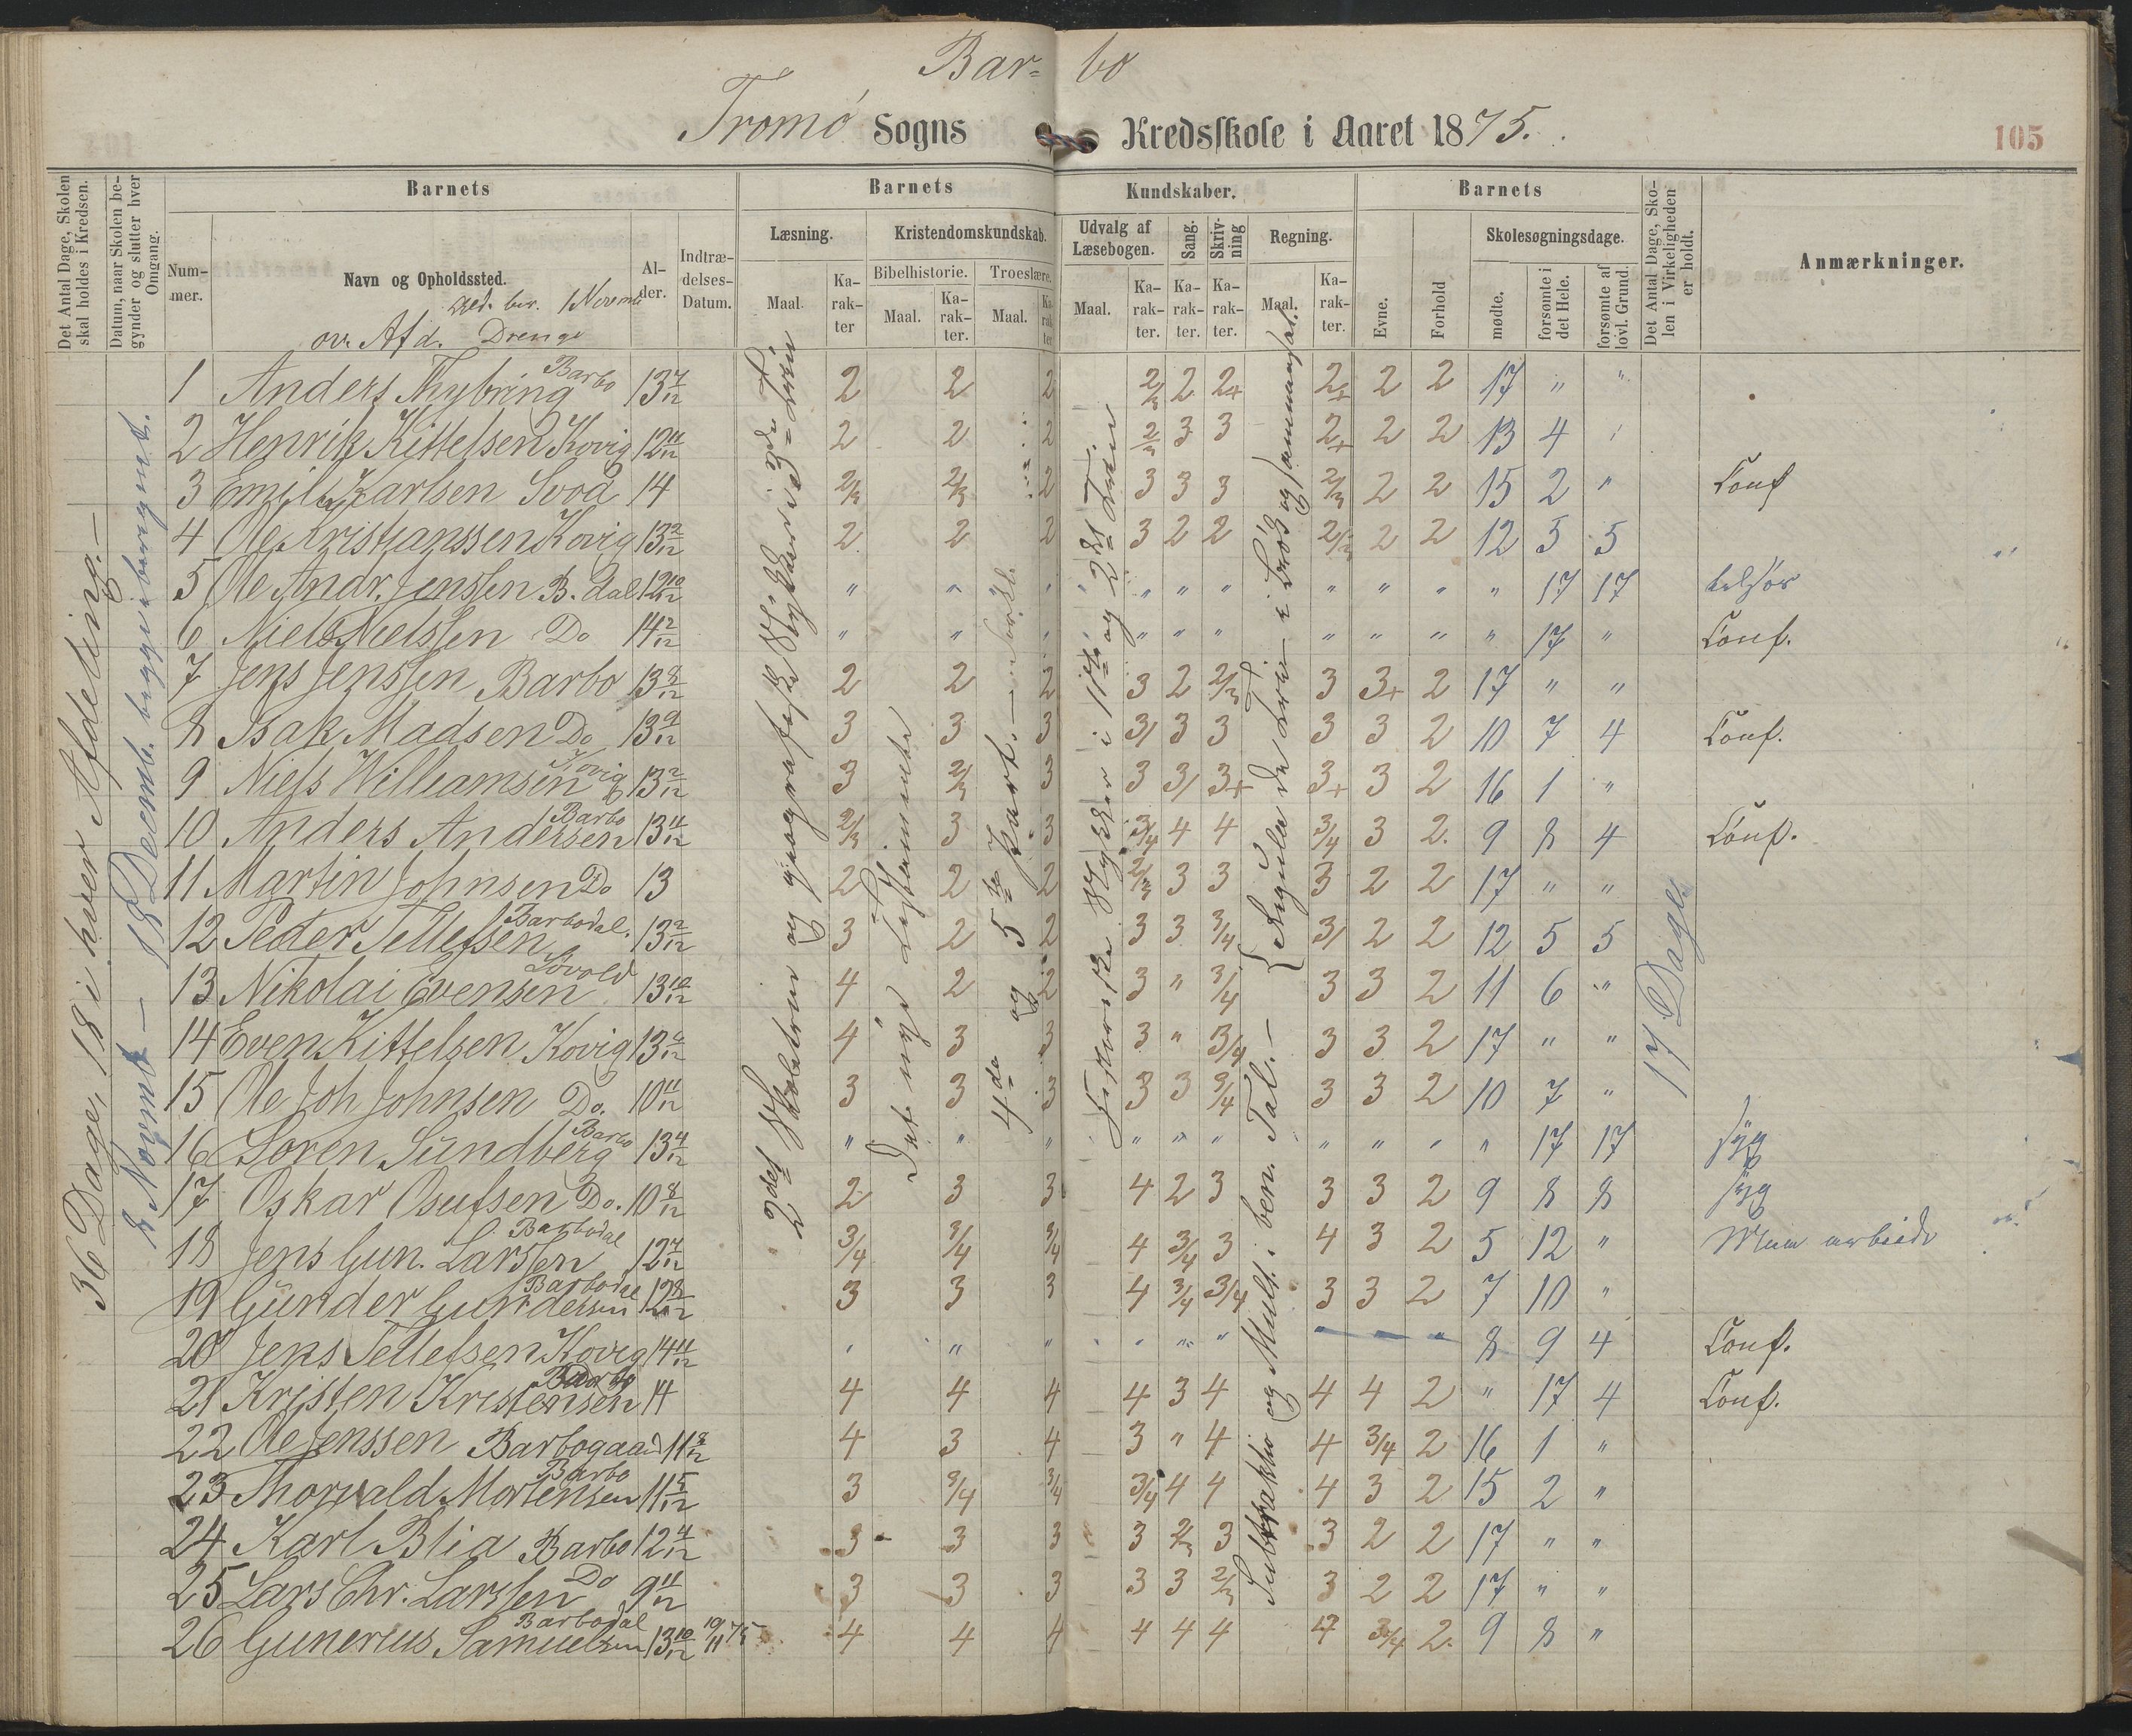 Bar- bo
Tromö Sogns Kredsskole i Aaret 1875.
105
Det Antal Dage, Skolen skal holdes i Kredsen.
Datum, naar Skolen begynder og slutter hver Omgang.
Barnets
Barnets
Kundskaber.
Barnets
Det Antal Dage, Skolen i Virkeligheden er holdt.
Anmærkninger.
Nummer.
Navn og Opholdssted.
Alder.
Indtrædelses-Datum.
Læsning.
Kristendomskundskab.
Udvalg af Læsebogen.
Sang.
Skrivning
Regning.
Evne.
Forhold
Skolesøgningsdage.
Bibelhistorie.
Troeslære.
Maal.
Karakter
Maal.
Karakter.
Maal.
Karakter
Maal.
Karakter.
Karakter.
Karakter.
Maal.
Karakter.
mødte.
forsømte i det Hele.
forsømte af lovl. Grund.
ov. Afd. Drenge
36 Dage, 18 i hver Afdeling.—
8 Novemb — 18 Decemb. begge iberegnet.
Det nye Testamente
4de og 5te Part.
Subtraktio og Mult. i ben. Tal.—
17 Dage
1 Anders Thybring Barbo 13 7/12 2 2 2 2/3 2 2+ 2+ 2 2 17 " "
2 Henrik Kittelsen Kovig 12 11/12 2 2 2 2/3 3 3 2+ 2 2 13 4 "
3 Emil Karlsen Svoa 14 2/3 2/3 2 3 3 3 2/3 2 2 15 2 " Conf
4 Ole Kristjanssen Kovig 13 2/12 2 2 2 3 2 2 2/3 2 2 12 5 5
5 Ole Andr. Jenssen B. dal 12 10/12 " " " " " " " " " " 17 17 tilsjøs
6 Niels Nielssen Do 14 2/12 " " " " " " " " " " 17 " Conf.
7 Jens Jenssen Barbo 13 8/12 2 2 2 3 2 2/3 3 3+ 2 17 " "
8 Isak Madsen Do 13 9/12 3 3 3 3/ 3 3 3 3 2 10 7 4 Conf.
9 Niels Willeamsen Kovig 13 2/12 3 2/3 3 3 3/ 3+ 3+ 3 2 16 1 "
10 Anders Andersen Barbo 13 11/12 2/3 3 3 3/4 4 4 3/4 3 2. 9 8 4 Conf.
11 Martin Johnsen Do 13 2 2 2 2/3 3 3 3 2 2 17 " "
12 Peder Tellefsen Barbodal. 13 2/12 3 2 2 3 3 3/4 3/ 2 2 12 5 5
13 Nikolai Evensen Lövold 13 10/12 4 2 2 3 " 3/4 3 3 2 11 6 "
14 Even Kittelsen Kovig 13 6/12 4 3 3 3 " 3/4 3 3 2 17 " "
15 Ole Joh Johnsen Do. 10 11/12 3 3 3 3 3 3/4 3 3 2 10 7 "
16 Soren Sundberg Barbo 13 4/12 " " " " " " " " " " 17 17 syg
17 Oskar Osufsen Do. 10 8/12 2 3 3 4 2 3 3 3 2 9 8 8 syg
18 Jens Gun. Larssen Barbodal 12 7/12 3/4 3/4 3/4 4 3/4 3 4 3 2 5 12 "
19 Gunder Gundersen Barbodal 12 8/12 3 3 3 4 3/4 3/4 3 3 2 7 10 "
20 Jens Tellefsen Kovig 14 11/12 " " " " " " 8 9 4 Conf.
21 Kristen Kristensen Barbo 14 4 4 4 4 3 4 4 4 2 " 17 4 Conf.
22 Ole Jenssen Barbogaard 11 8/12 4 3 4 3 " 4 4 3/4 2 16 1 "
23 Thorvald Mortensen Barbo 11 5/12 3 3/4 3/4 3/4 4 4 4 3 2 15 2 "
24 Karl Blia Barbo 12 4/12 3 3 3 3 2/3 3 3 2 2 17 " "
25 Lars Chr. Larssen Do 9 11/12 3 3 3 3 3 2/3 3 2 2 17 " "
26 Gunerius Samuelsen Barbodal 13 10/12 19/11 75 4 4 4 4 4 4 4 3/4 2. 9 8 "